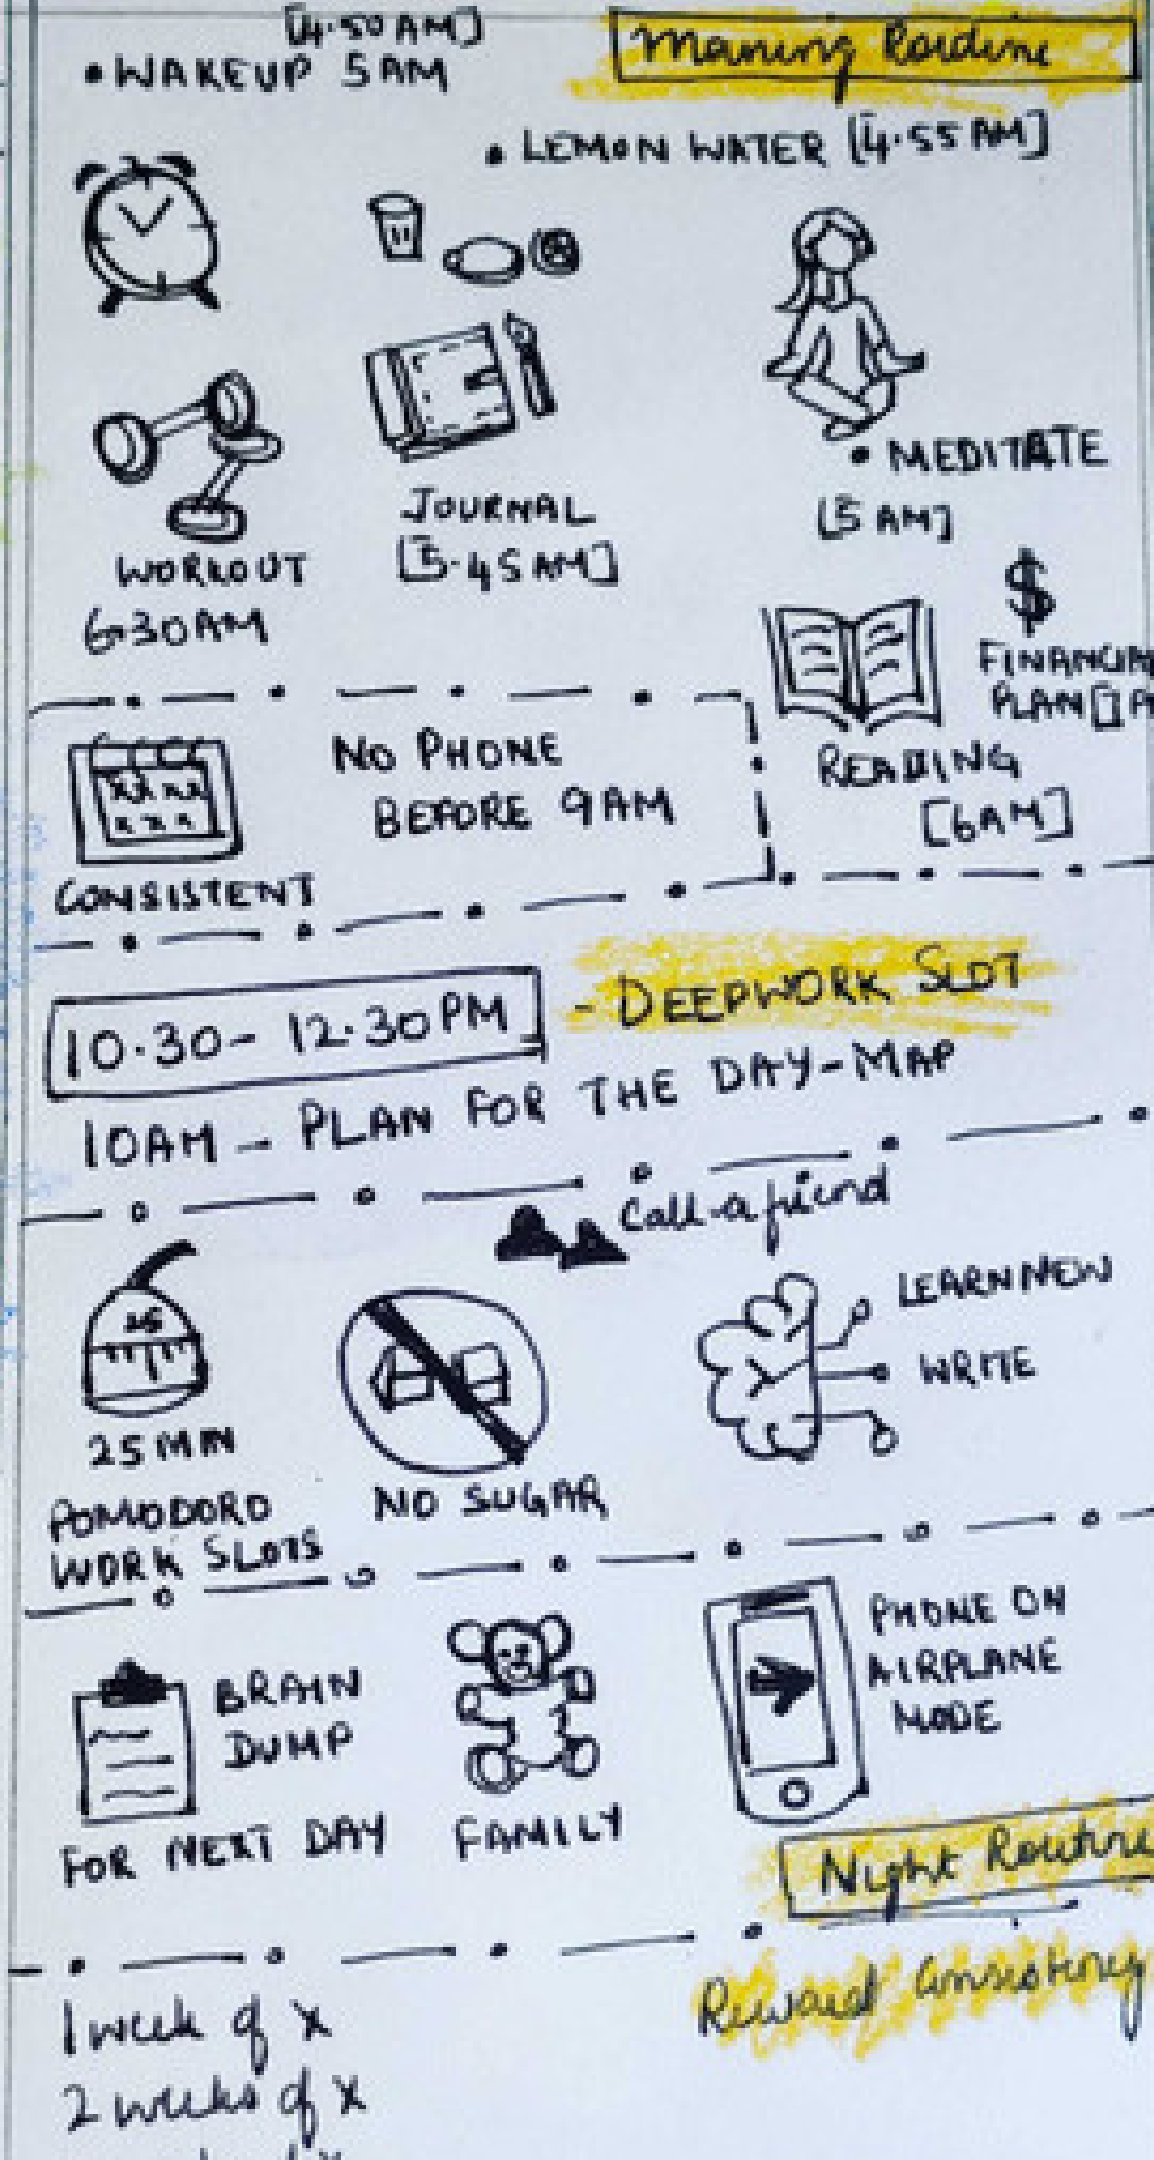 [4.50 AM]
• WAKEUP 5AM
Morning Routine
• LEMON WATER [4.55 AM]
• MEDITATE
[5 AM]
JOURNAL
[5.45 AM]
WORKOUT
6.30AM
$
FINANCIA
PLAN
READING
[6AM]
NO PHONE
BEFORE 9AM
CONSISTENT
10.30- 12.30PM - DEEPWORK SLOT
10AM - PLAN FOR THE DAY-MAP
Call-a friend
25
25 MIN
POMODORO
WORK SLOTS
NO SUGAR
LEARN NEW
WRITE
BRAIN
DUMP
FOR NEXT DAY
FAMILY
PHONE ON
AIRPLANE
MODE
Night Routine
Reward Consistency
1 week of x
2 weeks of x